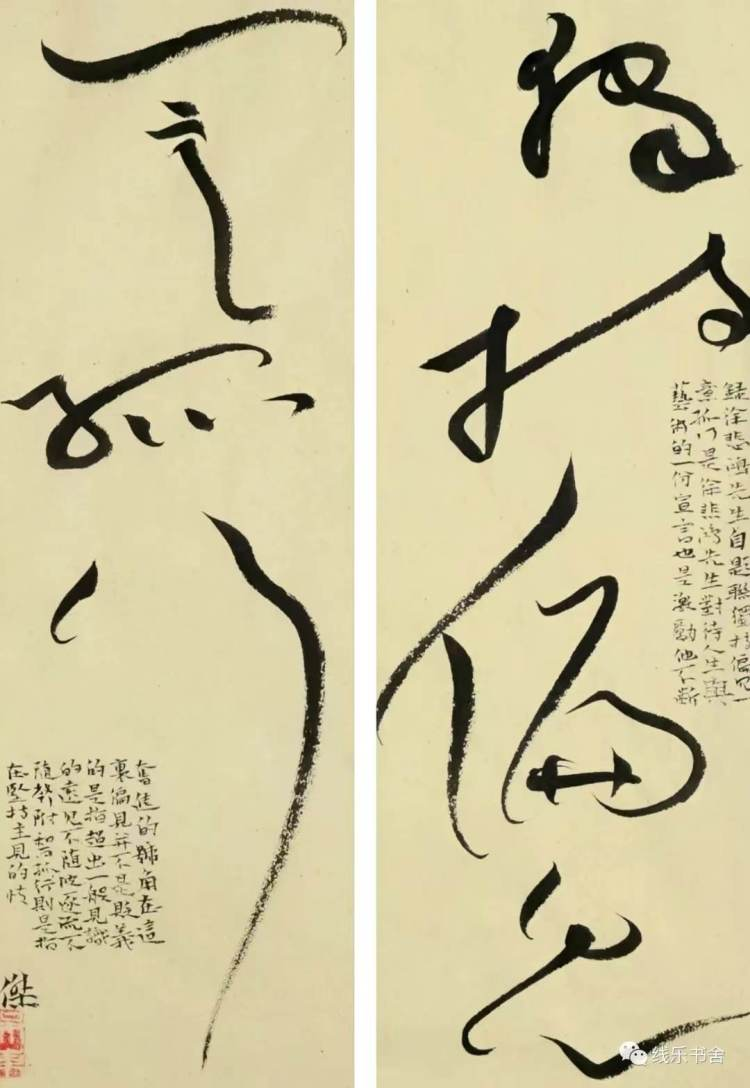 獨持偏見
錄徐悲鴻先生自題聯獨持偏見一
意孤行是徐悲鴻先生對待人生與
藝術的一句宣言也是激勵他不斷
一意孤行
奮進的號角在這
裏偏見并不是貶義
的是指超出一般見識
的遠見不随波逐流不
隨聲附和孤行則是指
在堅持主見的情
傑
线乐书舍